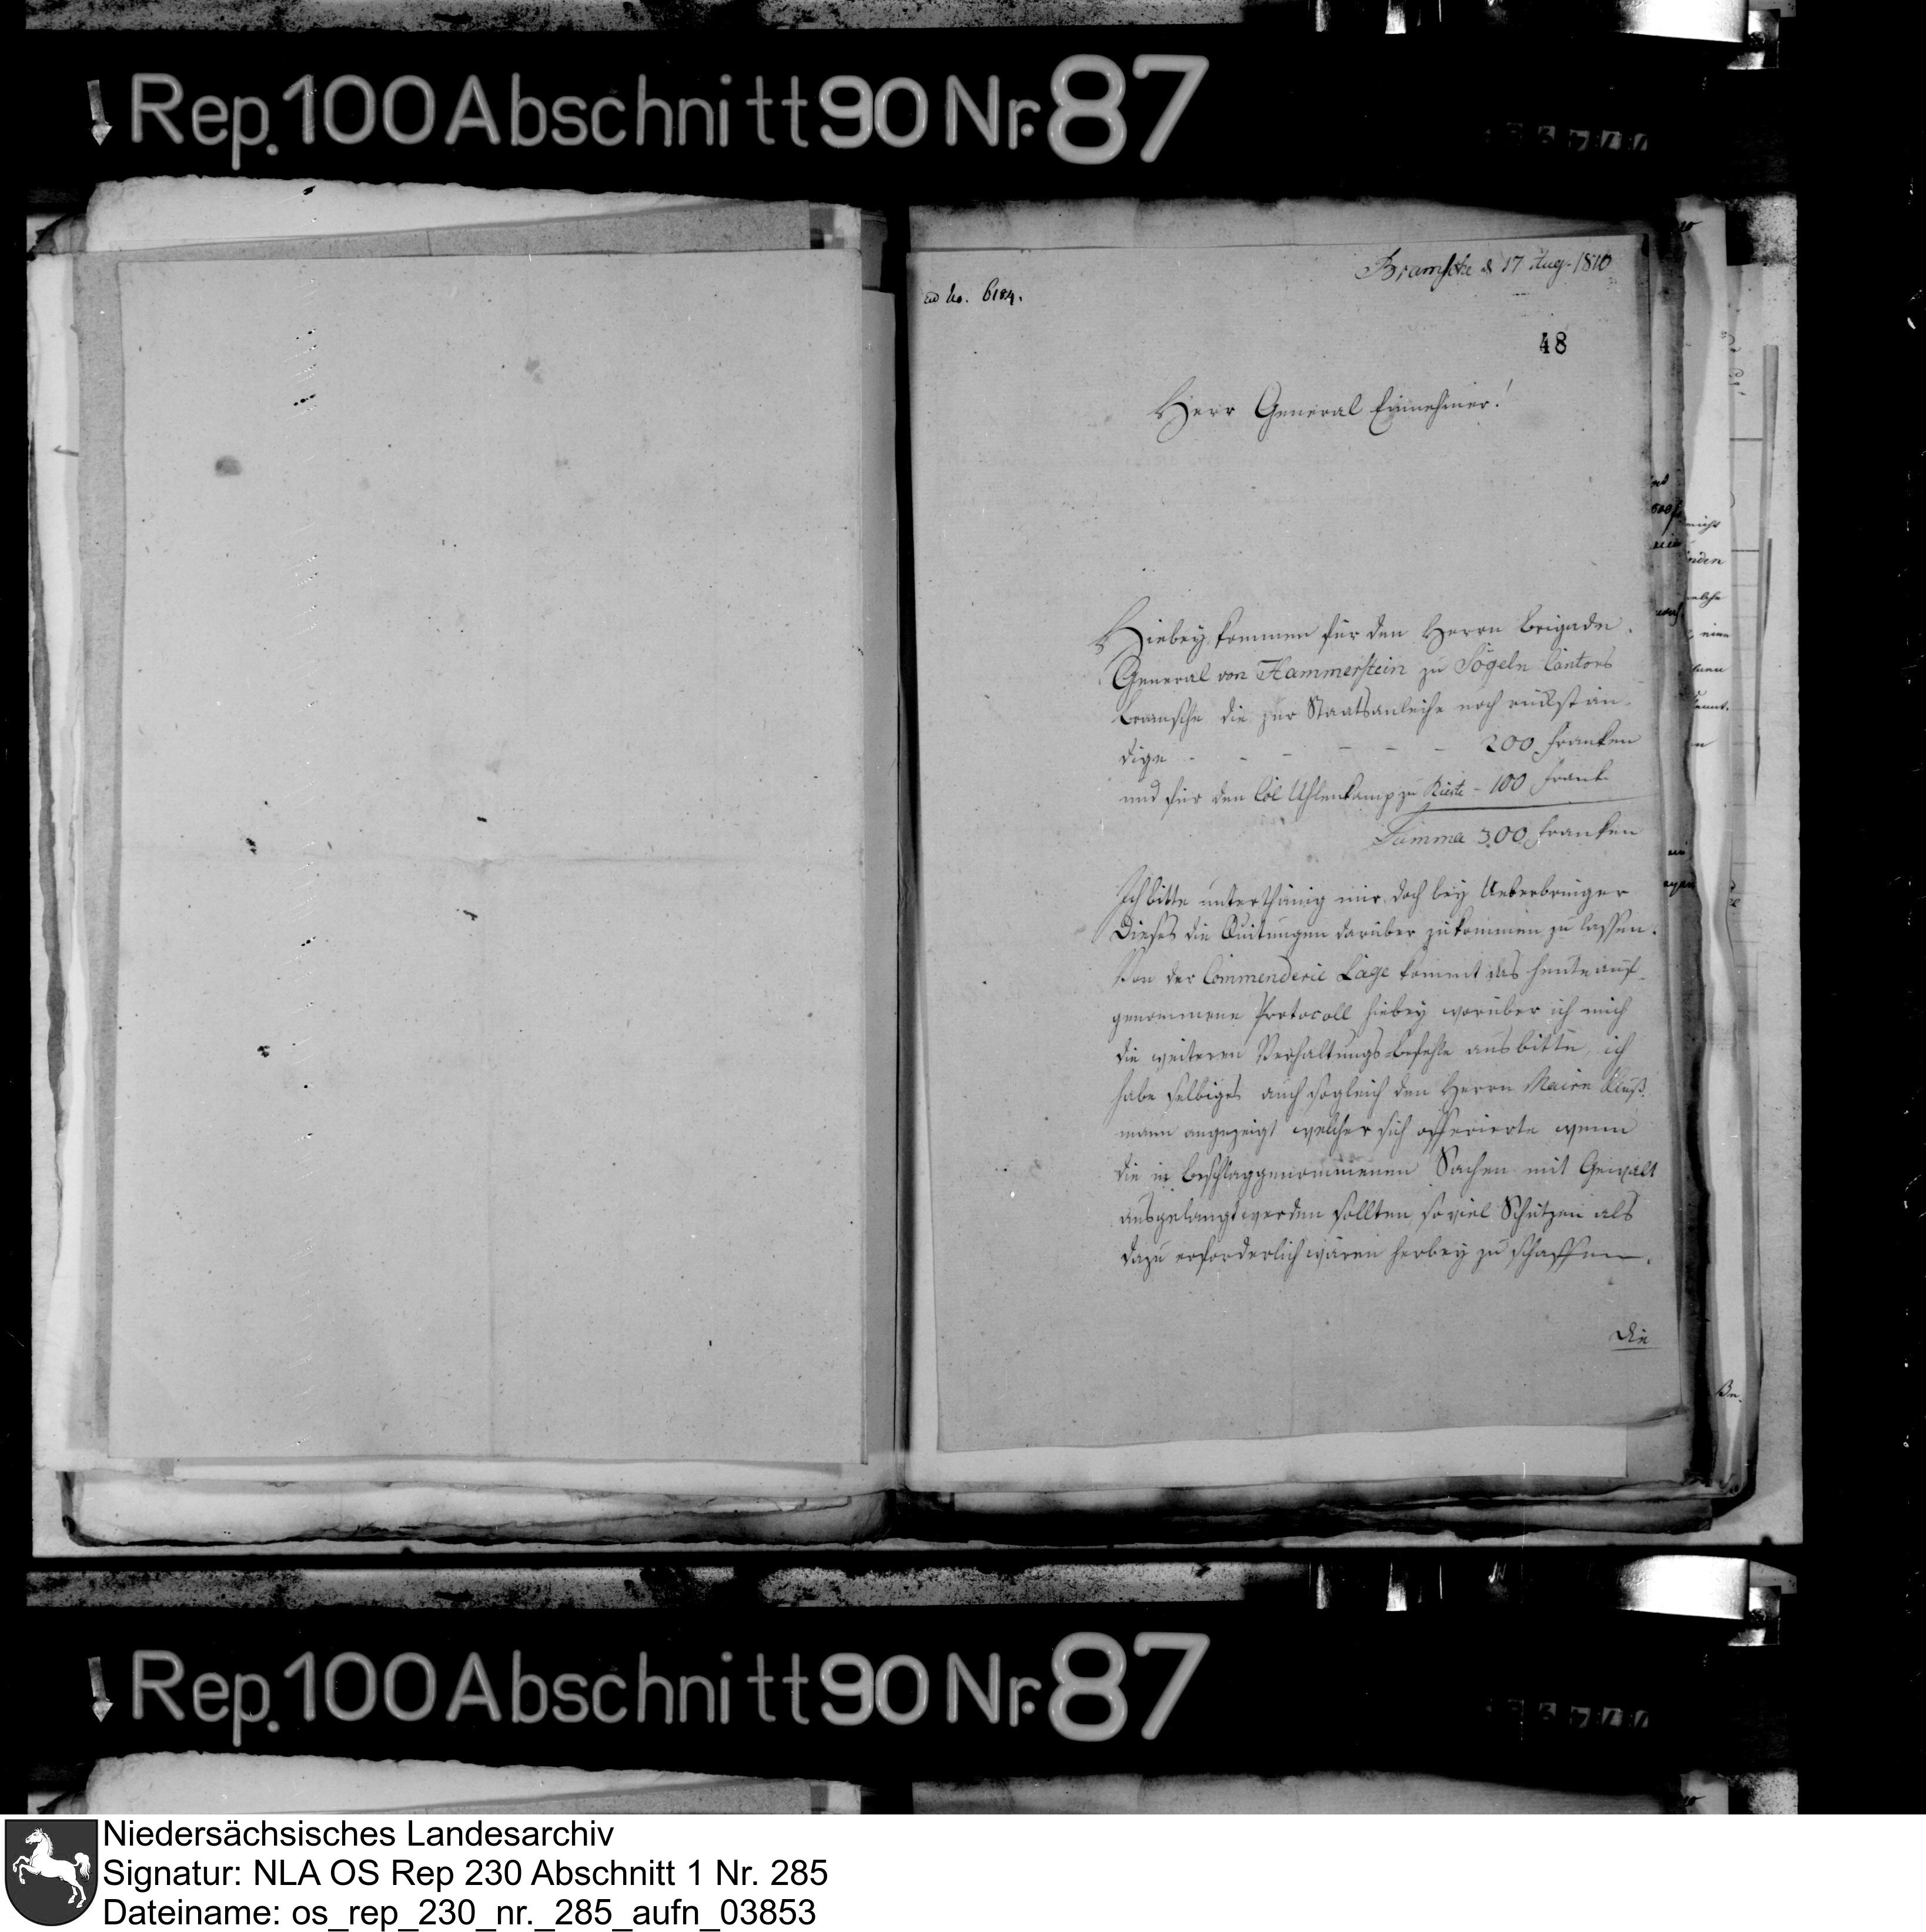 Rep. 100 Abschnitt 90 Nr. 87
Bramsche d 17 Aug. 1810
ad No. 6184.
48
Herr General Einnehmer!
Hiebey kommen für den Herrn Brigade-
General von Hammerstein zu Sögeln Cantons
Bramsche die zur Staatsanleihe noch rückstän-
dige - - - - - - 200 Franken
und für den Col Uhlenkamp zu Rieste - 100 Frank
Summa 300 Franken
Ich bitte unterthänig mir doch bey Ueberbringer
Dieses die Quitungen darüber zukommen zu lassen.
Von der Commenderie Lage kommt das heute auf-
genommene Protocoll hiebey worüber ich mich
die weiteren Verhaltungs-befehle ausbitte, ich
habe selbiges auch sogleich den Herrn Maire Kluß-
mann angezeigt welcher sich offerierte wenn
die in beschlaggenommenen Sachen mit Gewalt
ausgelangt werden sollten, so viel Schützen als
dazu erforderlich wären herbey zu schaffen.
Die
Rep. 100 Abschnitt 90 Nr. 87
Niedersächsisches Landesarchiv
Signatur: NLA OS Rep 230 Abschnitt 1 Nr. 285
Dateiname: os_rep_230_nr._285_aufn_03853